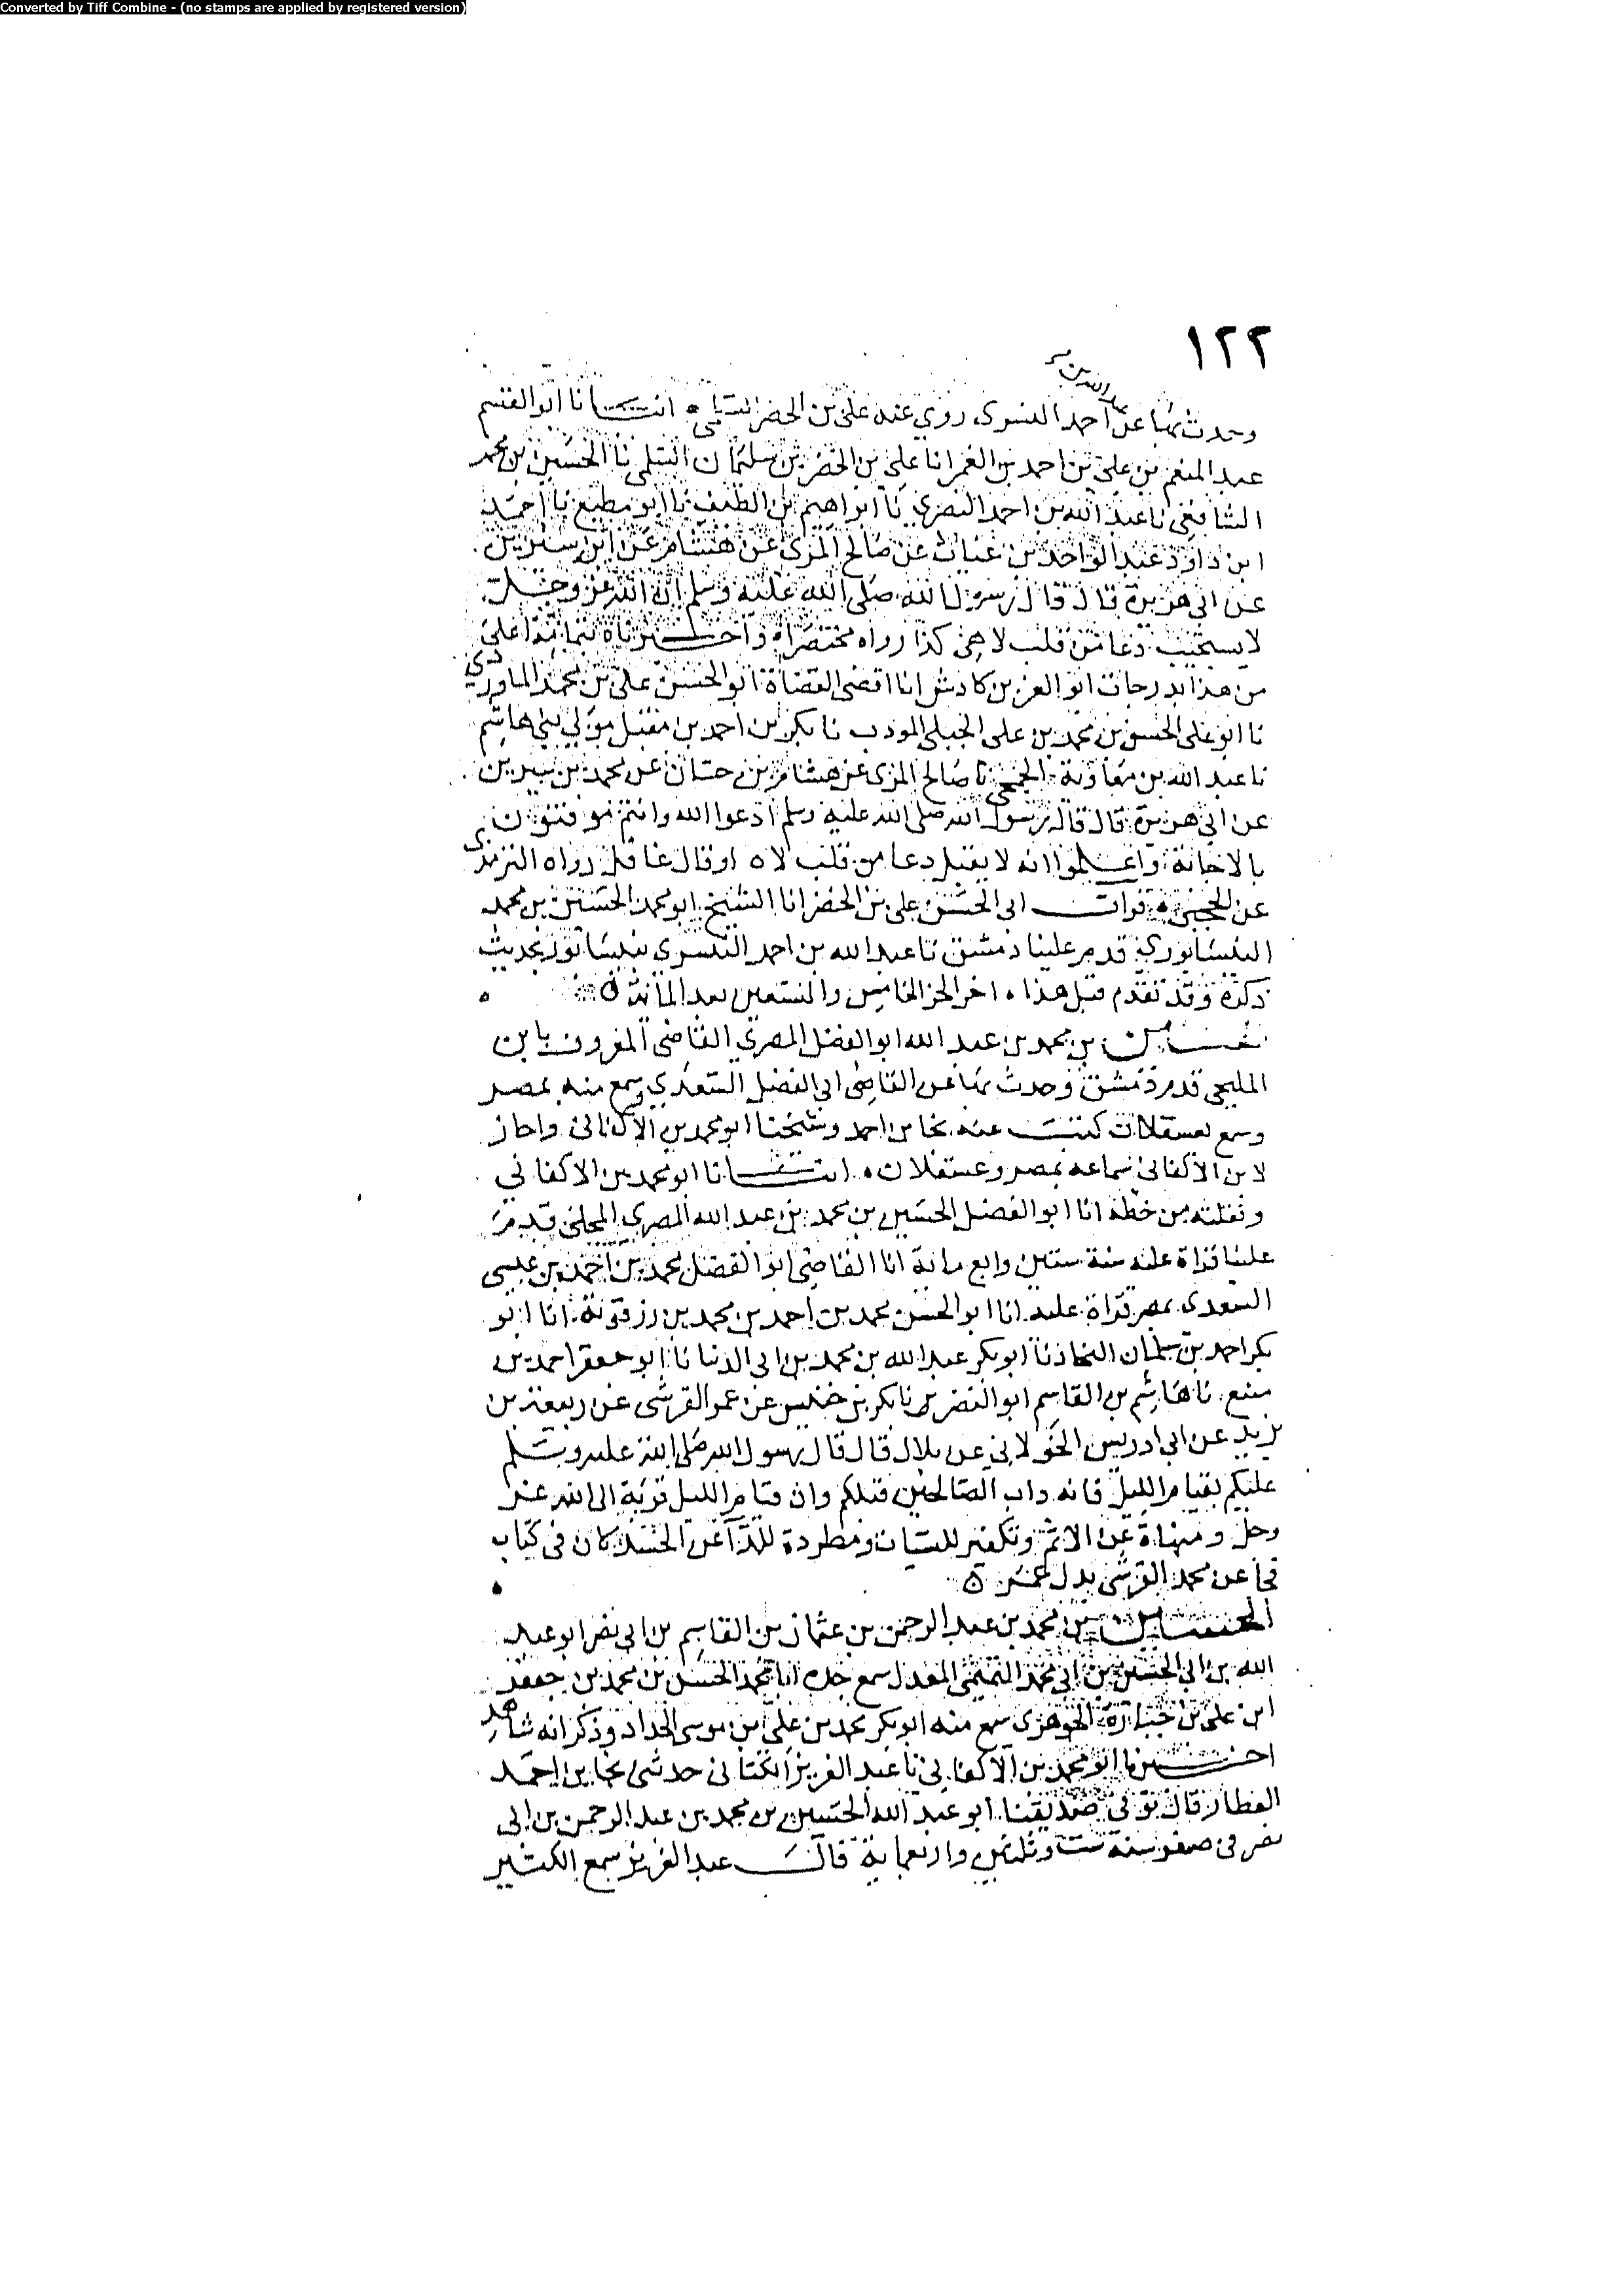 Converted by Tiff Combine - (no stamps are applied by registered version)
١٢٢
عبد الله بن
وحدث بها عن احمد النسوي روي عنه علي بن الخضر السلمي انبانا ابو القسم
عبد المنعم بن علي بن احمد بن الغمر انا علي بن الخضر بن سليمان السلمي نا الحسين بن محمد
الشافعي نا عبد الله بن احمد النصري نا ابراهيم بن نا ابو مطيع نا احمد
ابن داود عبد الواحد بن غياث عن صالح المري عن هشام عن ابن سيرين
عن ابي هريرة قال قال رسول الله صلى الله عليه وسلم ان الله عز وجل
لا يستجيب دعا من قلب لاهي كذا رواه مختصرا واخبرناه بتمامه اعلى
من هذا بدرجات ابو العز بن كادش انا اقضى القضاة ابو الحسن علي بن محمد الماوردي
نا ابو علي الحسن بن محمد بن علي الجبلي المودب نا بكر بن احمد بن مقبل مولى بني هاشم
نا عبد الله بن معاوية الجمحي نا صالح المري عن هشام بن حسان عن محمد بن سيرين
عن ابي هريرة قال قال رسول الله صلى الله عليه وسلم ادعوا الله وانتم موقنون
بالاجابة واعلموا انه لا يقبل دعا من قلب لاه او قال غافل رواه الترمذي
عن الجمحي قرات ابي الحسن علي بن الخضر انا الشيخ ابو محمد الحسين بن محمد
النيسابوري قدم علينا دمشق نا عبد الله بن احمد النسوي بنيسابور بحديث
ذكره وقد تقدم قبل هذا اخر الجز الخامس والتسعين بعد المائة
بن محمد بن عبد الله ابو الفضل المصري القاضي المعروف بابن
المليحي قدم دمشق وحدث بها عن القاضي ابي الفضل السعدي وسمع منه بمصر
وسمع بعسقلان كتب عنه نجا بن احمد وشيخنا ابو محمد بن الاكفاني واجاز
لابن الاكفاني سماعه بمصر وعسقلان انبانا ابو محمد بن الاكفاني
ونقلته من خطه انا ابو الفضل الحسين بن محمد بن عبد الله المصري قدم
علينا قراة عليه سنة ستين واربع مائة انا القاضي ابو الفضل محمد بن احمد بن عيسى
السعدي بمصر قراة عليه انا ابو الحسن محمد بن احمد بن محمد بن رزقويه انا ابو
بكر احمد بن سلمان النجاد نا ابو بكر عبد الله بن محمد بن ابي الدنيا نا ابو جعفر احمد بن
منيع نا هاشم بن القاسم ابو النضر نا بكر بن خنيس عن عمر القرشي عن ربيعة بن
يزيد عن ابي ادريس الخولاني عن بلال قال قال رسول الله صلى الله عليه وسلم
عليكم بقيام الليل فانه داب الصالحين قبلكم وان قيام الليل قربة الى الله عز
وجل ومنهاة عن الاثم وتكفير للسيات ومطردة للدا عن الجسد كان في كتاب
نجا عن محمد القرشي بدل عمر
الحسين بن محمد بن عبد الرحمن بن عثمان بن القاسم بن ابي نصر ابو عبد
الله بن ابي الحسين بن ابي محمد التميمي المعدل سمع جده ابا محمد الحسن بن محمد بن جعفر
ابن علي بن جبارة الجوهري سمع منه ابو بكر محمد بن علي بن موسى الحداد وذكر انه شاهد
اخبرنا ابو محمد بن الاكفاني نا عبد العزيز الكتاني حدثني نجا بن احمد
العطار قال توفي صديقنا ابو عبد الله الحسين بن محمد بن عبد الرحمن بن ابي
نصر في صفر سنة ست وثلثين واربعماية قال عبد العزيز سمع الكثير